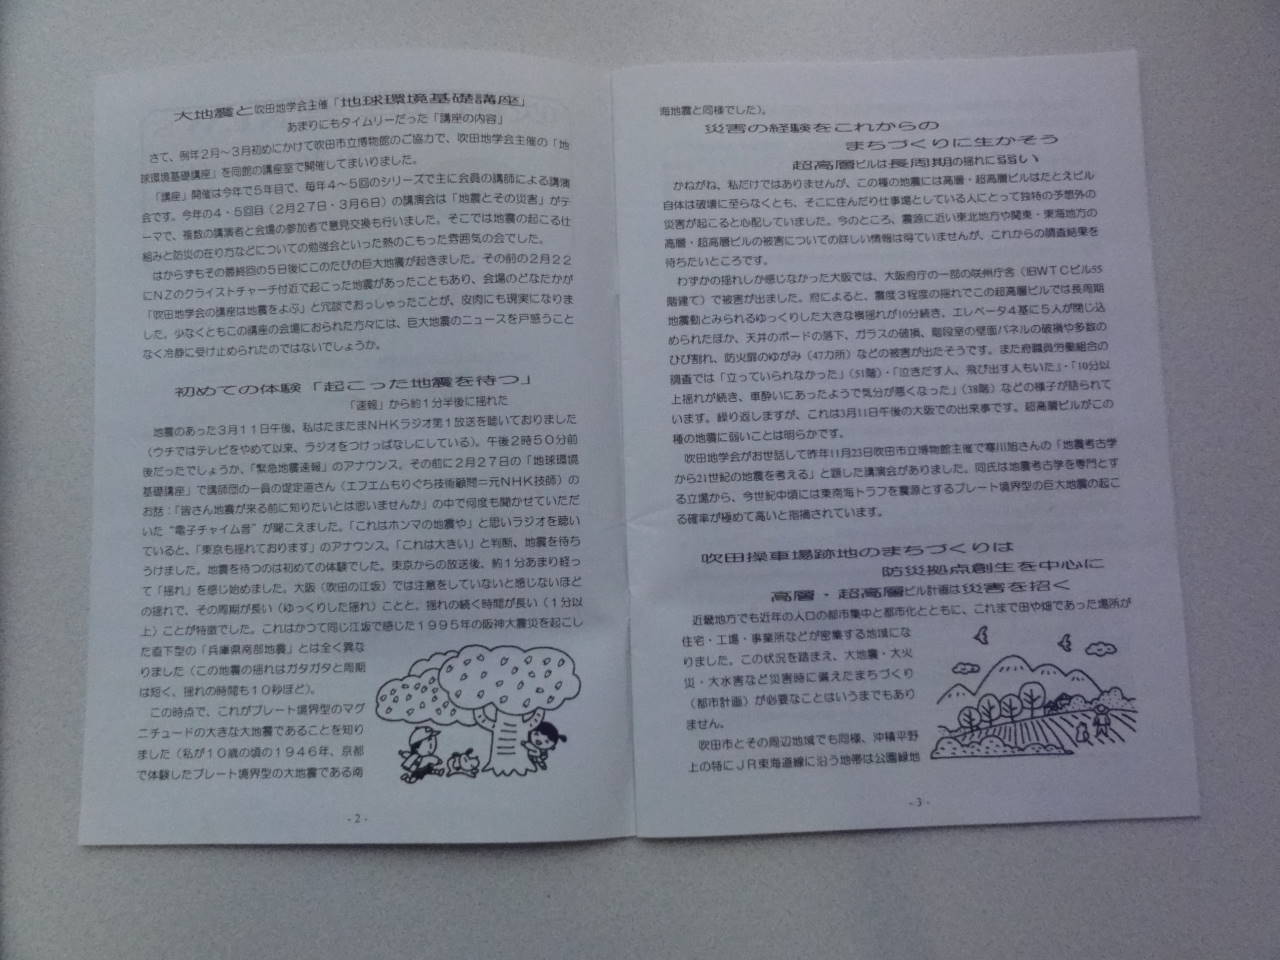 大地震と吹田地学会主催「地球環境基礎講座」
あまりにもタイムリーだった「講座の内容」
さて、例年2月～3月初めにかけて吹田市立博物館のご協力で、吹田地学会主催の「地
球環境基礎講座」を同館の講座室で開催してまいりました。
「講座」開催は今年で5年目で、毎年4～5回のシリーズで主に会員の講師による講演
会です。今年の4・5回目（2月27日・3月6日）の講演会は「地震とその災害」がテ
ーマで、複数の講演者と会場の参加者で意見交換も行いました。そこでは地震の起こる仕
組みと防災の在り方などについての勉強会といった熱のこもった雰囲気の会でした。
はからずもその最終回の5日後にこのたびの巨大地震が起きました。その前の2月22
にNZのクライストチャーチ付近で起こった地震があったこともあり、会場のどなたかが
「吹田地学会の講座は地震をよぶ」と冗談でおっしゃったことが、皮肉にも現実になりま
した。少なくともこの講座の会場におられた方々には、巨大地震のニュースを戸惑うこと
なく冷静に受け止められたのではないでしょうか。
初めての体験「起こった地震を待つ」
「速報」から約1分半後に揺れた
地震のあった3月11日午後、私はたまたまNHKラジオ第1放送を聴いておりました
（ウチではテレビをやめて以来、ラジオをつけっぱなしにしている）。午後2時50分前
後だったでしょうか、「緊急地震速報」のアナウンス。その前に2月27日の「地球環境
基礎講座」で講師団の一員の定道さん（エフエムもりぐち技術顧問＝元NHK技師）の
お話：「皆さん地震が来る前に知りたいとは思いませんか」の中で何度も聞かせていただ
いた“電子チャイム音”が聞こえました。「これはホンマの地震や」と思いラジオを聴い
ていると、「東京も揺れております」のアナウンス。「これは大きい」と判断、地震を待ち
うけました。地震を待つのは初めての体験でした。東京からの放送後、約1分あまり経っ
て「揺れ」を感じ始めました。大阪（吹田の江坂）では注意をしていないと感じないほど
の揺れで、その周期が長い（ゆっくりした揺れ）ことと、揺れの続く時間が長い（1分以
上）ことが特徴でした。これはかつて同じ江坂で感じた1995年の阪神大震災を起こし
た直下型の「兵庫県南部地震」とは全く異な
りました（この地震の揺れはガタガタと周期
は短く、揺れの時間も10秒ほど）。
この時点で、これがプレート境界型のマグ
ニチュードの大きな大地震であることを知り
ました（私が10歳の頃の1946年、京都
で体験したプレート境界型の大地震である南
- 2 -
海地震と同様でした）。
災害の経験をこれからの
まちづくりに生かそう
超高層ビルは長周期の揺れに弱い
かねがね、私だけではありませんが、この種の地震には高層・超高層ビルはたとえビル
自体は破壊に至らなくとも、そこに住んだり仕事場としている人にとって独特の予想外の
災害が起こると心配していました。今のところ、震源に近い東北地方や関東・東海地方の
高層・超高層ビルの被害についての詳しい情報は得ていませんが、これからの調査結果を
待ちたいところです。
わずかの揺れしか感じなかった大阪では、大阪府庁の一部の咲州庁舎（旧WTCビル55
階建て）で被害が出ました。府によると、震度3程度の揺れでこの超高層ビルでは長周期
地震動とみられるゆっくりした大きな横揺れが10分続き、エレベータ4基に5人が閉じ込
められたほか、天井のボードの落下、ガラスの破損、階段室の壁面パネルの破損や多数の
ひび割れ、防火扉のゆがみ（47カ所）などの被害が出たそうです。また府職員労働組合の
調査では「立っていられなかった」（51階）・「泣きだす人、飛び出す人もいた」・「10分以
上揺れが続き、車酔いにあったようで気分が悪くなった」（38階）などの様子が語られて
います。繰り返しますが、これは3月11日午後の大阪での出来事です。超高層ビルがこの
種の地震に弱いことは明らかです。
吹田地学会がお世話して昨年11月23日吹田市立博物館主催で寒川旭さんの「地震考古学
から21世紀の地震を考える」と題した講演会がありました。同氏は地震考古学を専門とす
る立場から、今世紀中頃には東南海トラフを震源とするプレート境界型の巨大地震の起こ
る確率が極めて高いと指摘されています。
吹田操車場跡地のまちづくりは
防災拠点創生を中心に
高層・超高層ビル計画は災害を招く
近畿地方でも近年の人口の都市集中と都市化とともに、これまで田や畑であった場所が
住宅・工場・事業所などが密集する地域にな
りました。この状況を踏まえ、大地震・大火
災・大水害など災害時に備えたまちづくり
（都市計画）が必要なことはいうまでもあり
ません。
吹田市とその周辺地域でも同様、沖積平野
上の特にJR東海道線に沿う地帯は公園緑地
- 3 -